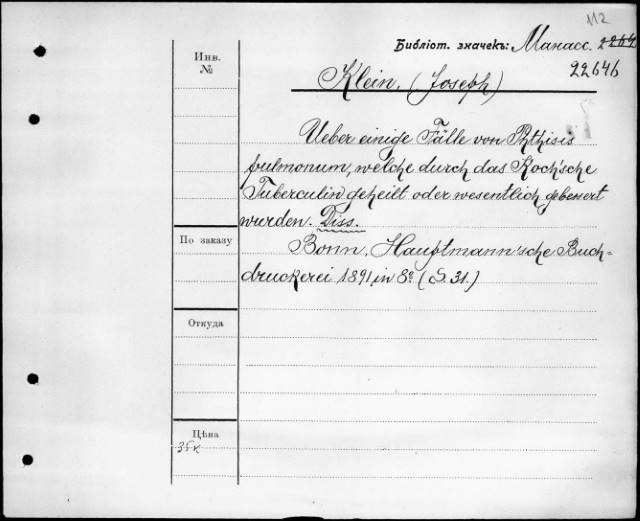 112
Библіот. значекъ: Манасс. 2264
22646
Инв.
№
Klein. (Joseph)
Ueber einige Fälle von Phthisis
pulmonum, welche durch das Koch'sche
Tuberculin geheilt oder wesentlich gebessert
wurden. Diss.
По заказу
Bonn. Hauptmann'sche Buch=
druckerei 1891, in 8º (S. 31.)
Откуда
Цѣна
35 к